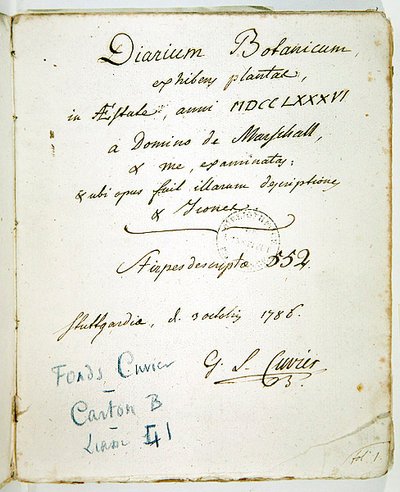 Diarium Botanicum,
exhibens plantas,
in Æstate, anni MDCCLXXXVI
a Domino de Marschall,
& me, examinatas;
& ubi opus fuit illarum descriptiones
& Icones
Stirpes descriptæ 552.
Stuttgardiæ, d. 3 octobris 1786.
G. L. Cuvier
Fonds Cuvier
Carton B
Liasse 41
fol. 1.